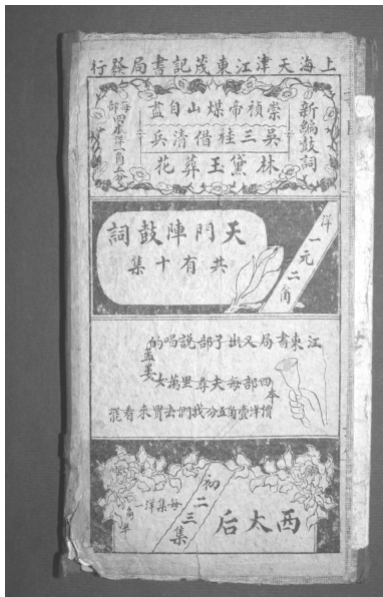 上海天津江東茂記書局發行
新編鼓詞
崇禎帝煤山自盡
吳三桂借清兵
林黛玉葬花
每部四本洋一角五分
洋一元二角
天門陣鼓詞
共有十集
江東書局又出了部説唱的
孟姜女萬里尋夫每部四本
價洋壹角五分我們去買來看罷
西太后
初二三集
每集洋一角半